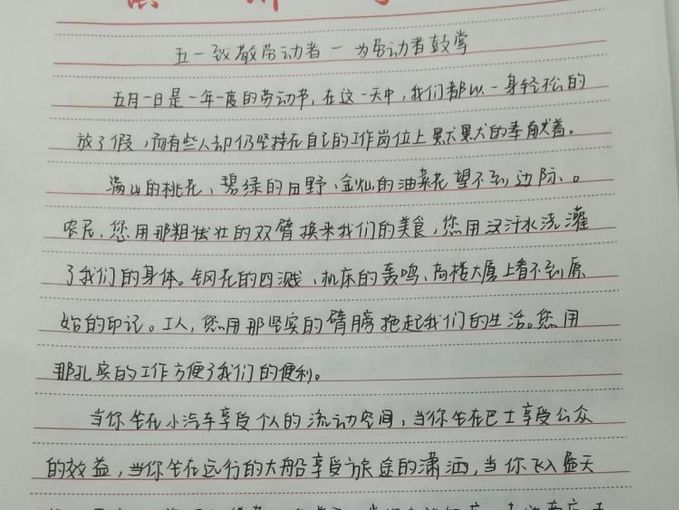 五一致敬劳动者－为劳动者鼓掌
五月一日是一年一度的劳动节,在这一天中,我们都以一身轻松的
放了假,而有些人却仍坚持在自己的工作岗位上默默的奉献着。
满山的桃花,碧绿的田野,金灿的油菜花望不到边际、。
农民,您用那粗壮的双臂换来我们的美食,您用汗水浇灌
了我们的身体。钢花的四溅、机床的轰鸣、高楼大厦上看不到原
始的印记。工人,您用那坚实的臂膀拖起我们的生活。您用
那扎实的工作方便了我们的便利。
当你坐在小汽车享受个人的流动空间,当你坐在巴士享受公众
的效益,当你坐在远行的大船享受旅途的潇洒,当你飞入蓝天